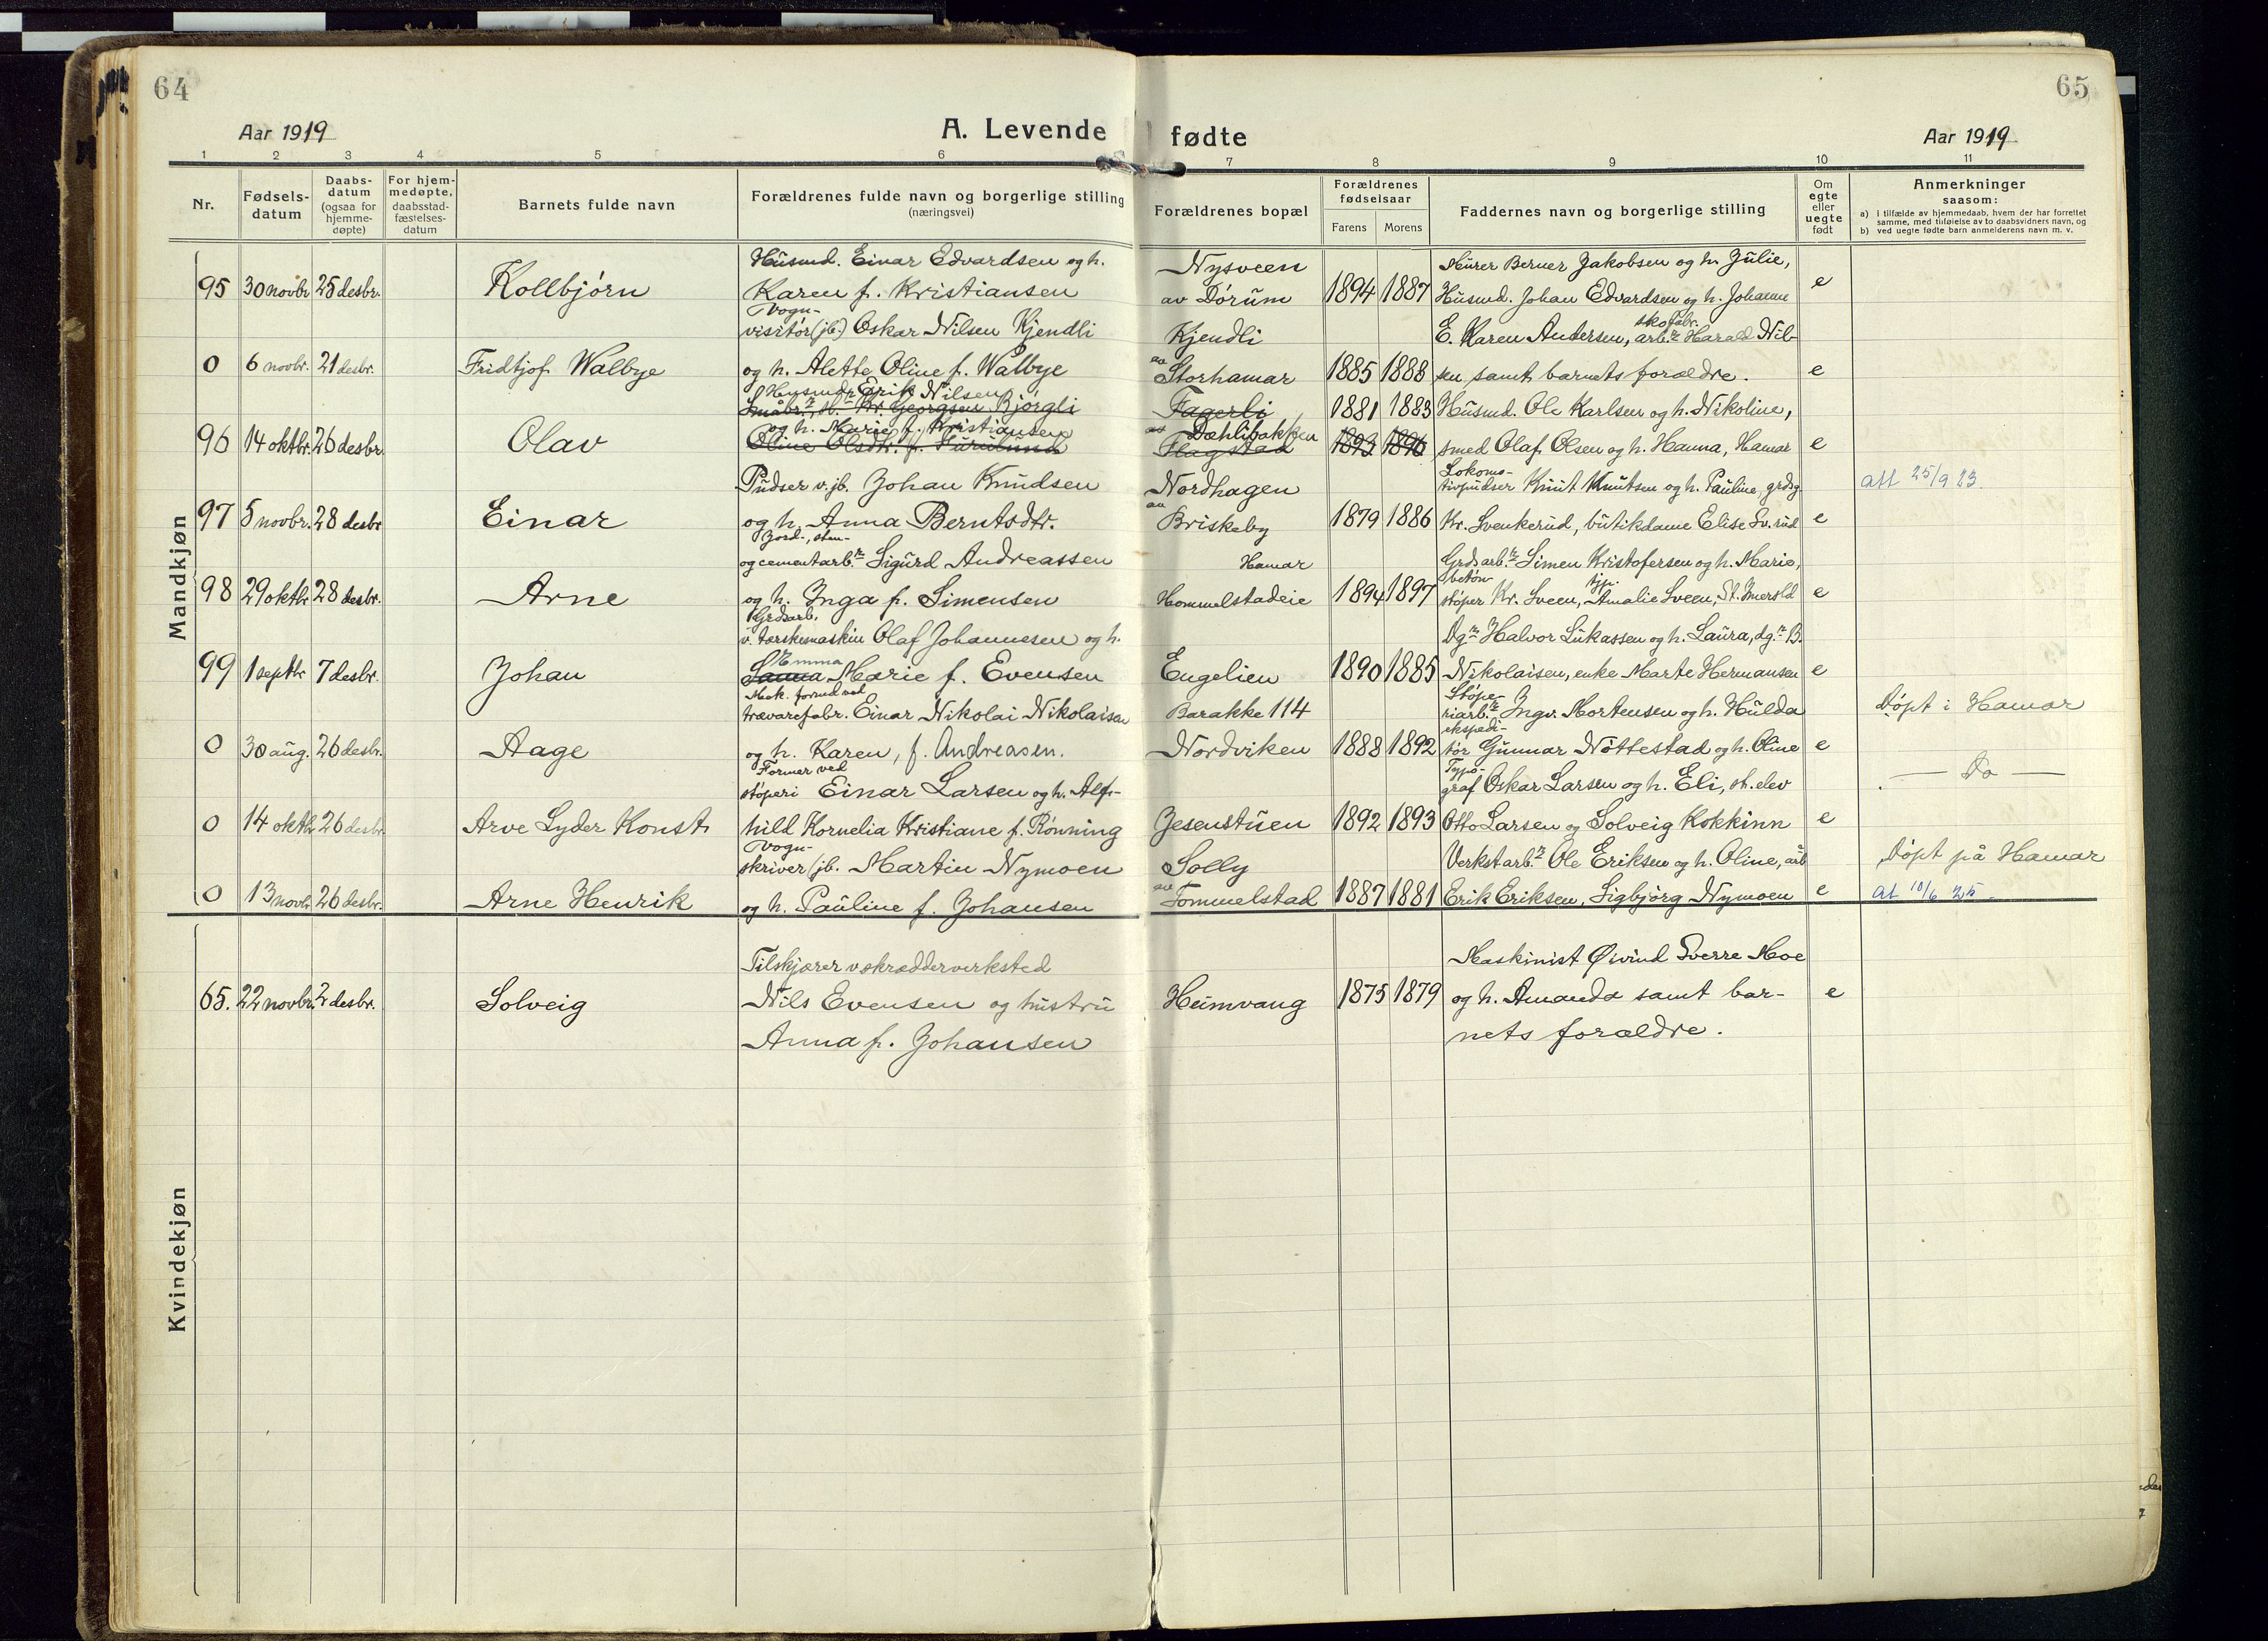 64
65
Aar 1919
A. Levende fødte
Aar 1919
1 2 3 4 5 6 7 8 9 10 11
Nr.
Fødsels-
datum
Daabs-
datum
(ogsaa for
hjemme-
døpte)
For hjem-
medøpte,
daabsstad-
fæstelses-
datum
Barnets fulde navn
Forældrenes fulde navn og borgerlige stilling
(næringsvei)
Forældrenes bopæl
Forældrenes
fødselsaar
Farens Morens
Faddernes navn og borgerlige stilling
Om
egte
eller
uegte
født
Anmerkninger
saasom:
a) i tilfælde av hjemmedaab, hvem der har forrettet
samme, med tilføielse av to daabsvidners navn, og
b) ved uegte fødte barn anmelderens navn m. v.
Mandkjøn
Husmd. Einar Edvardsen og h. Nysveen Murer Berner Jakobsen og h. Julie,
95 30 novbr 25 desbr. Kollbjørn Karen f. Kristiansen av Dørum 1894 1887 Husmd. Johan Edvardsen og h. Johanne e
Vogn-
visitør (jb.) Oskar Nilsen Kjendli Kjendli E. Karen Andersen, skofabr. arb.r Harald Nil-
0 6 novbr. 21 desbr. Fridtjof Walbye og h. Alette Oline f. Walbye av Storhamar 1885 1888 sen samt barnets forældre. e
Husmdr Erik Nilsen
Bjørgli Fagerli 1881 1883 Husmd. Ole Karlsen og h. Nikoline,
og h. Marie f. Kristiansen Dæhlibakken
96 14 oktbr. 26 desbr. Olav Oline Olsdtr. f. Furulund av Flagstad 1893 1896 smed Olaf Olsen og h. Hanna, Hamar e
Pudser v. jb. Johan Knudsen Nordhagen Lokomo-
tivpudser Knut Knutsen og h. Pauline, grdsg. att 25/9 23.
97 5 novbr. 28 desbr Einar og h. Anna Berntsdtr. av Briskeby 1879 1886 Kr. Svenkerud, butikdame Elise Sv.rud e
Jord-, sten-
og cementarb.r Sigurd Andreassen Hamar Grdsarb.r Simen Kristofersen og h. Marie,
98 29 oktbr 28 desbr. Arne og h. Inga f. Simensen Hommelstadeie 1894 1897 betonstøper Kr. Sveen, Amalie Sveen, e
Grdsarb.
v. tærskemaskin Olaf Johannesen og h. Dg.r Halvor Lukassen og h. Laura, dg.r B.
99 1 septbr 7 desbr. Johan Emma Marie f. Evensen Engelien 1890 1885 Nikolaisen, enke Marte Hermansen e
trævarefabr. Einar Nikolai Nikolaisen Barakke 114 Støpe-
riarb.r Ingv. Mortensen og h. Hulda Døpt i Hamar
0 30 aug. 26 desbr. Aage og h. Karen, f. Andreasen. Nordviken 1888 1892 ekspedi-
tør Gunnar Nøttestad og h. Oline e
Former ved
støperi Einar Larsen og h. Alf- Typo-
graf Oskar Larsen og h. Eli, st. elev — Do —
0 14 oktbr 26 desbr. Arve Lyder Konst. hild Kornelia Kristiane f. Rønning Jesenstuen 1892 1893 Otto Larsen og Solveig Kokkinn e
Vogn-
skriver jb. Martin Nymoen Solly Verkstarb.r Ole Eriksen og h. Oline, arb Døpt på Hamar
0 13 novbr. 26 desbr. Arne Henrik og h. Pauline f. Johansen av Tommelstad 1887 1881 Erik Eriksen, Sigbjørg Nymoen e at 10/6 25
Kvindekjøn
Tilskjærer v. skrædderverksted Maskinist Øivind Sverre Moe
65. 22 novbr. 2 desbr. Solveig Nils Evensen og hustru Heimvang 1875 1879 og h. Amanda samt bar- e
Anna f. Johansen nets forældre.